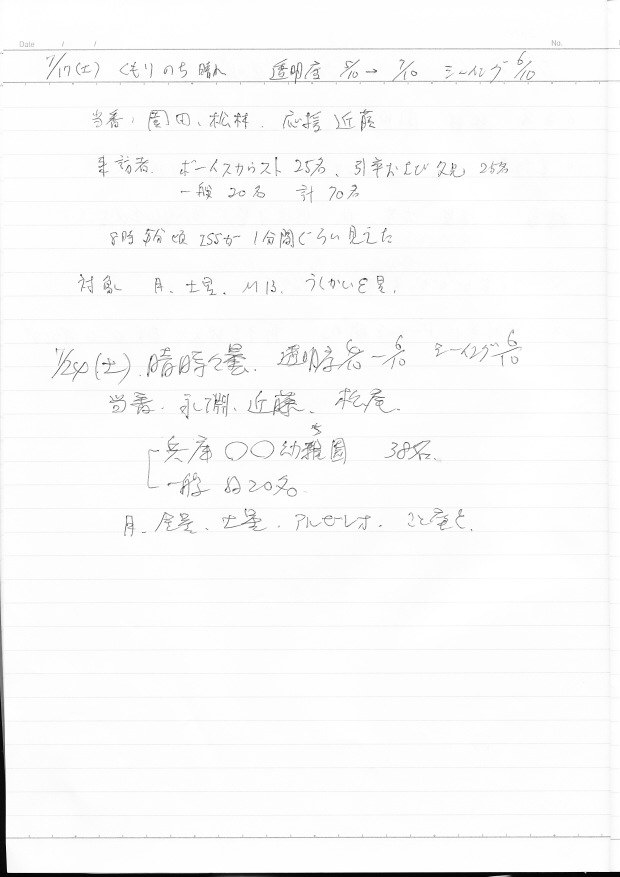 Date / / No.
7/17(土) くもりのち晴れ 透明度 5/10→7/10 シーイング 6/10
当番、園田、松林. 応援 近藤
来訪者. ボーイスカウト 25名、引率および父兄 25名
一般 20名 計 70名
8時 分頃 ISSが 1分間ぐらい見えた
対象 月、土星、M13、うしかいε星.
7/24(土). 晴時々曇. 透明度 6/10 シーイング 6/10
当番. 近藤、松尾.
兵庫 〇〇幼稚園 38名.
一般 約20名.
月、金星、土星、アルビレオ、こと座ε.